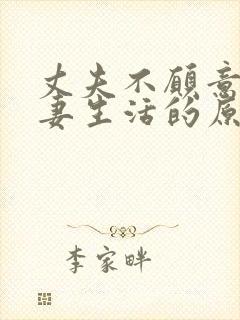 丈夫不愿意
妻生活的原
李家畔